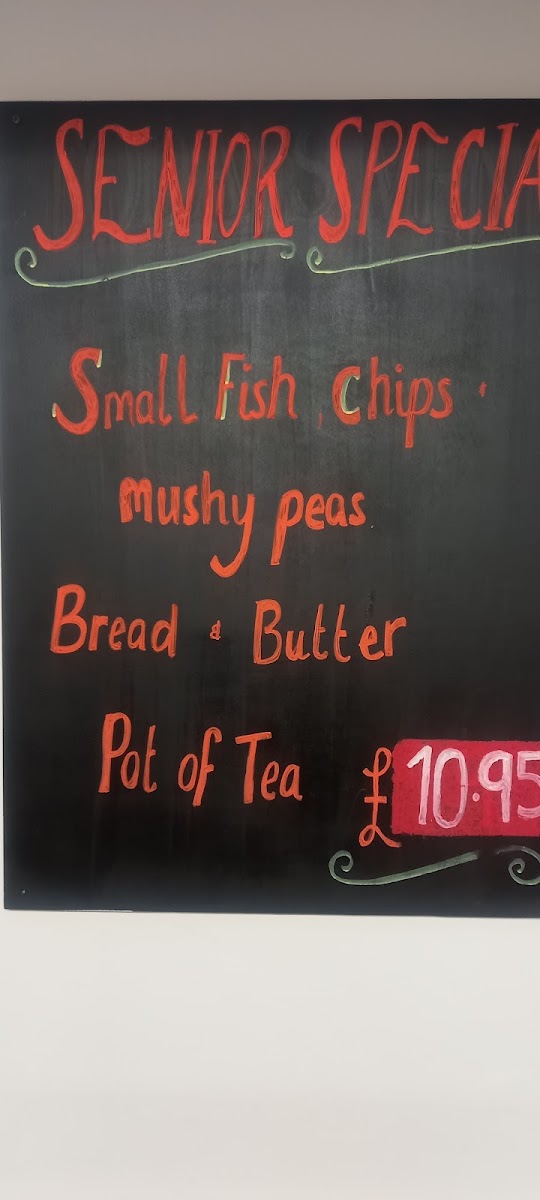 SENIOR SPECIA
Small Fish, Chips
mushy peas
Bread & Butter
Pot of Tea
£10.95